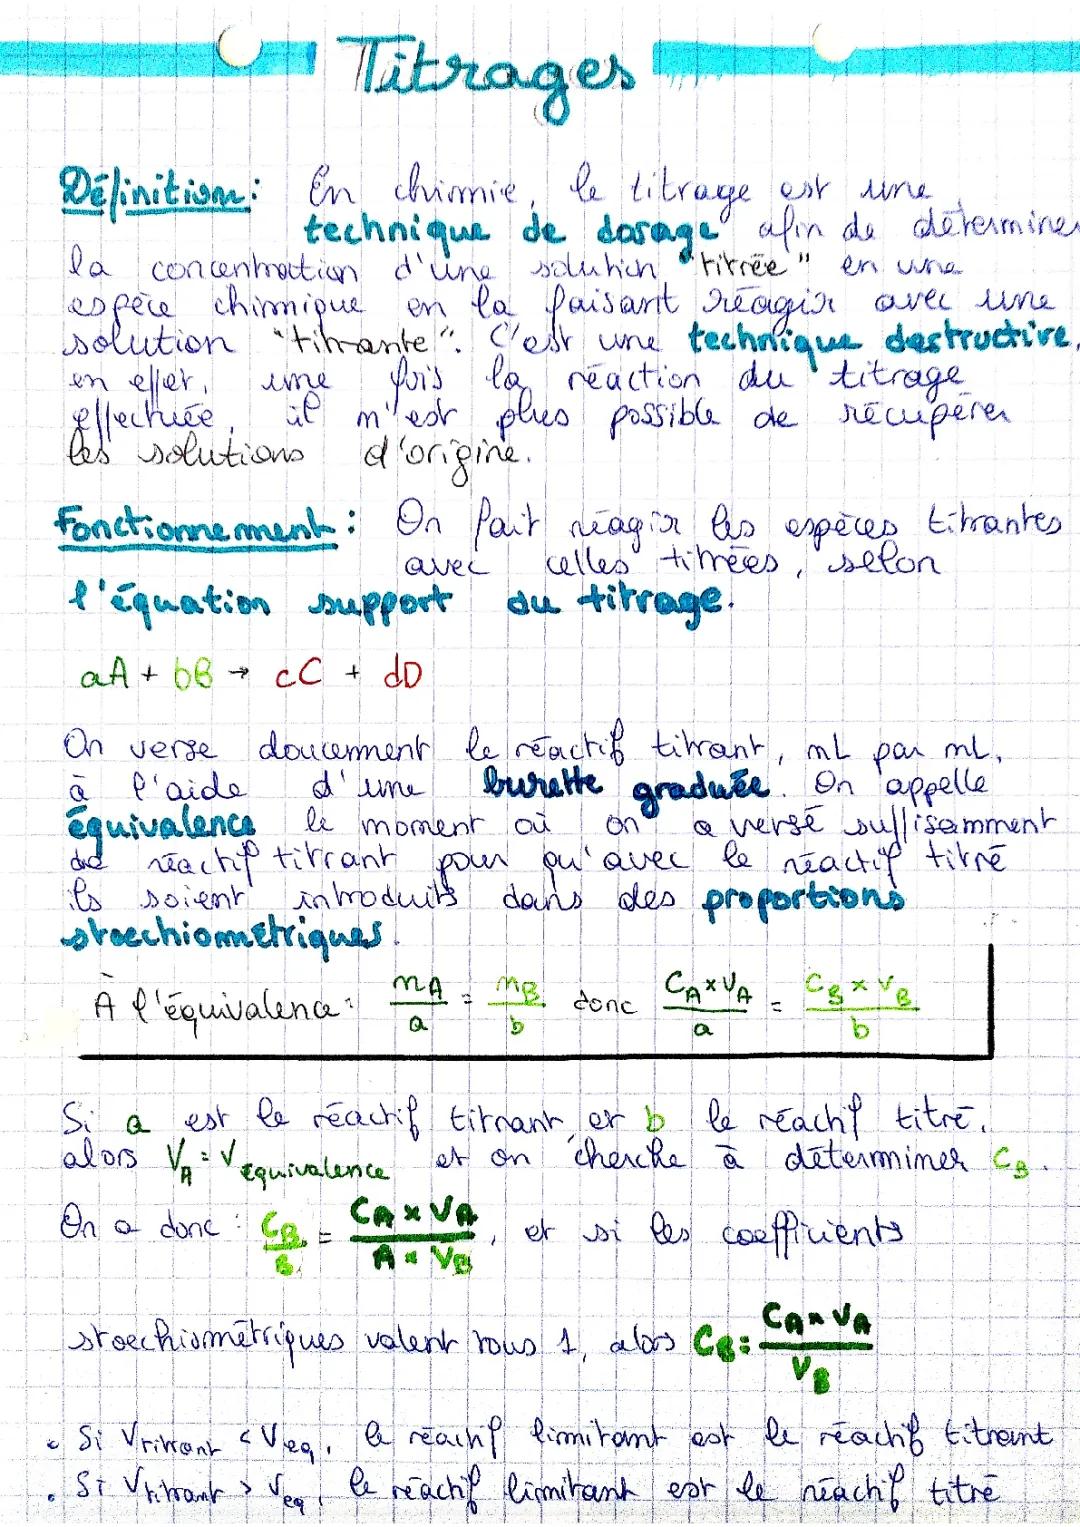 Titrages
Définition : En chimie, le titrage est une
technique de dosage afin de déterminer
la concentration d'une solution "titrée" en une
espèce chimique en la faisant réagir avec une
solution "titrante". C'est une technique destructive,
en effet, une fois la réaction du titrage
effectuée, il n'est plus possible de récupérer
les solutions d'origine.
Fonctionnement : On fait réagir les espèces titrantes
avec celles titrées, selon
l'équation support du titrage.
aA + bB → cC + dD
On verse doucement le réactif titrant, mL par mL,
à l'aide d'une burette graduée. On appelle
équivalence le moment où on a versé suffisamment
de réactif titrant pour qu'avec le réactif titré
ils soient introduits dans des proportions
stoechiométriques.
À l'équivalence : nA/a = nB/b donc (CA×VA)/a = (CB×VB)/b
Si a est le réactif titrant et b le réactif titré,
alors VA = Véquivalence et on cherche à déterminer CB.
On a donc : CB/B = (CA×VA)/(A×VB), et si les coefficients
stoechiométriques valent tous 1, alors CB = (CA×VA)/VB
• Si Vtitrant < Veq, le réactif limitant est le réactif titrant
• Si Vtitrant > Veq, le réactif limitant est le réactif titré